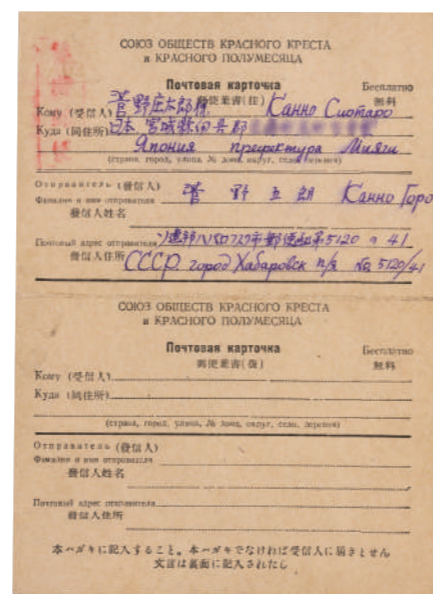 СОЮЗ ОБЩЕСТВ КРАСНОГО КРЕСТА
и КРАСНОГО ПОЛУМЕСЯЦА
Почтовая карточка
Бесплатно
郵便葉書(往)
無料
Кому (受信人) 菅野庄太郎様 Канно Сиотаро
Куда (同住所) 日本 宮城縣
Япония префектура Мияги
(страна, город, улица, № дома, округ, село, деревня)
Отправитель (發信人)
Фамилия и имя отправителя
發信人姓名
菅野五朗 Канно Горо
Почтовый адрес отправителя
發信人住所
ソ連邦ハバロフスク市郵便函第5120の41
СССР. город Хабаровск п/я № 5120/41
СОЮЗ ОБЩЕСТВ КРАСНОГО КРЕСТА
и КРАСНОГО ПОЛУМЕСЯЦА
Почтовая карточка
Бесплатно
郵便葉書(復)
無料
Кому (受信人)
Куда (同住所)
(страна, город, улица, № дома, округ, село, деревня)
Отправитель (發信人)
Фамилия и имя отправителя
發信人姓名
Почтовый адрес отправителя
發信人住所
本ハガキに記入すること。本ハガキでなければ受信人に届きません
文言は裏面に記入されたし